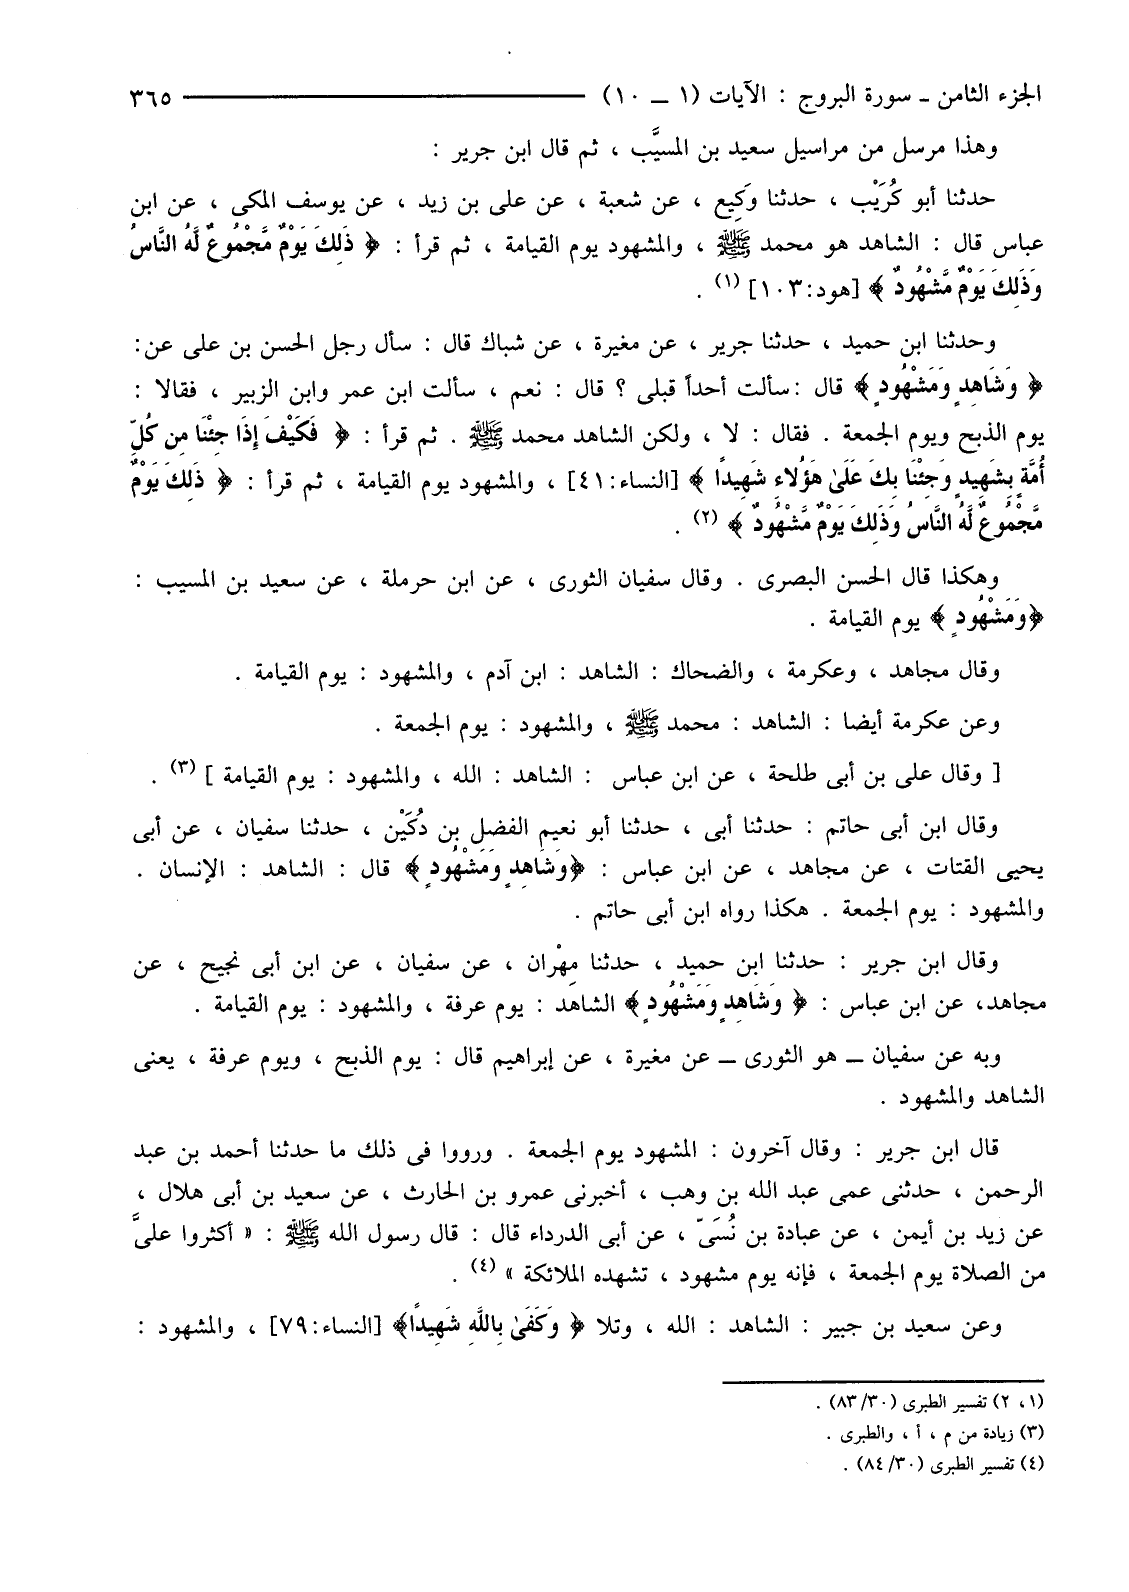 الجزء الثامن - سورة البروج : الآيات (١ ــ ١٠) ٣٦٥
وهذا مرسل من مراسيل سعيد بن المسيَّب ، ثم قال ابن جرير :
حدثنا أبو كُرَيْب ، حدثنا وَكِيع ، عن شعبة ، عن على بن زيد ، عن يوسف المكى ، عن ابن
عباس قال : الشاهد هو محمد ﷺ ، والمشهود يوم القيامة ، ثم قرأ : ﴿ ذَلِكَ يَوْمٌ مَّجْمُوعٌ لَّهُ النَّاسُ
وَذَلِكَ يَوْمٌ مَّشْهُودٌ ﴾ [هود:١٠٣] (١) .
وحدثنا ابن حميد ، حدثنا جرير ، عن مغيرة ، عن شباك قال : سأل رجل الحسن بن على عن:
﴿ وَشَاهِدٍ وَمَشْهُودٍ ﴾ قال :سألت أحداً قبلى ؟ قال : نعم ، سألت ابن عمر وابن الزبير ، فقالا :
يوم الذبح ويوم الجمعة . فقال : لا ، ولكن الشاهد محمد ﷺ . ثم قرأ : ﴿ فَكَيْفَ إِذَا جِئْنَا مِن كُلِّ
أُمَّةٍ بِشَهِيدٍ وَجِئْنَا بِكَ عَلَىٰ هَؤُلاءِ شَهِيدًا ﴾ [النساء:٤١] ، والمشهود يوم القيامة ، ثم قرأ : ﴿ ذَلِكَ يَوْمٌ
مَّجْمُوعٌ لَّهُ النَّاسُ وَذَلِكَ يَوْمٌ مَّشْهُودٌ ﴾ (٢) .
وهكذا قال الحسن البصرى . وقال سفيان الثورى ، عن ابن حرملة ، عن سعيد بن المسيب :
﴿وَمَشْهُودٍ ﴾ يوم القيامة .
وقال مجاهد ، وعكرمة ، والضحاك : الشاهد : ابن آدم ، والمشهود : يوم القيامة .
وعن عكرمة أيضا : الشاهد : محمد ﷺ ، والمشهود : يوم الجمعة .
[ وقال على بن أبى طلحة ، عن ابن عباس : الشاهد : الله ، والمشهود : يوم القيامة ] (٣) .
وقال ابن أبى حاتم : حدثنا أبى ، حدثنا أبو نعيم الفضل بن دُكَيْن ، حدثنا سفيان ، عن أبى
يحيى القتات ، عن مجاهد ، عن ابن عباس : ﴿وَشَاهِدٍ وَمَشْهُودٍ ﴾ قال : الشاهد : الإنسان .
والمشهود : يوم الجمعة . هكذا رواه ابن أبى حاتم .
وقال ابن جرير : حدثنا ابن حميد ، حدثنا مِهْران ، عن سفيان ، عن ابن أبى نجيح ، عن
مجاهد، عن ابن عباس : ﴿ وَشَاهِدٍ وَمَشْهُودٍ﴾ الشاهد : يوم عرفة ، والمشهود : يوم القيامة .
وبه عن سفيان ــ هو الثورى ــ عن مغيرة ، عن إبراهيم قال : يوم الذبح ، ويوم عرفة ، يعنى
الشاهد والمشهود .
قال ابن جرير : وقال آخرون : المشهود يوم الجمعة . ورووا فى ذلك ما حدثنا أحمد بن عبد
الرحمن ، حدثنى عمى عبد الله بن وهب ، أخبرنى عمرو بن الحارث ، عن سعيد بن أبى هلال ،
عن زيد بن أيمن ، عن عبادة بن نُسَىّ ، عن أبى الدرداء قال : قال رسول الله ﷺ : « أكثروا علىَّ
من الصلاة يوم الجمعة ، فإنه يوم مشهود ، تشهده الملائكة » (٤) .
وعن سعيد بن جبير : الشاهد : الله ، وتلا ﴿ وَكَفَىٰ بِاللَّهِ شَهِيدًا﴾ [النساء:٧٩] ، والمشهود :
(١، ٢) تفسير الطبرى (٣٠/ ٨٣) .
(٣) زيادة من م ، أ ، والطبرى .
(٤) تفسير الطبرى (٣٠/ ٨٤) .